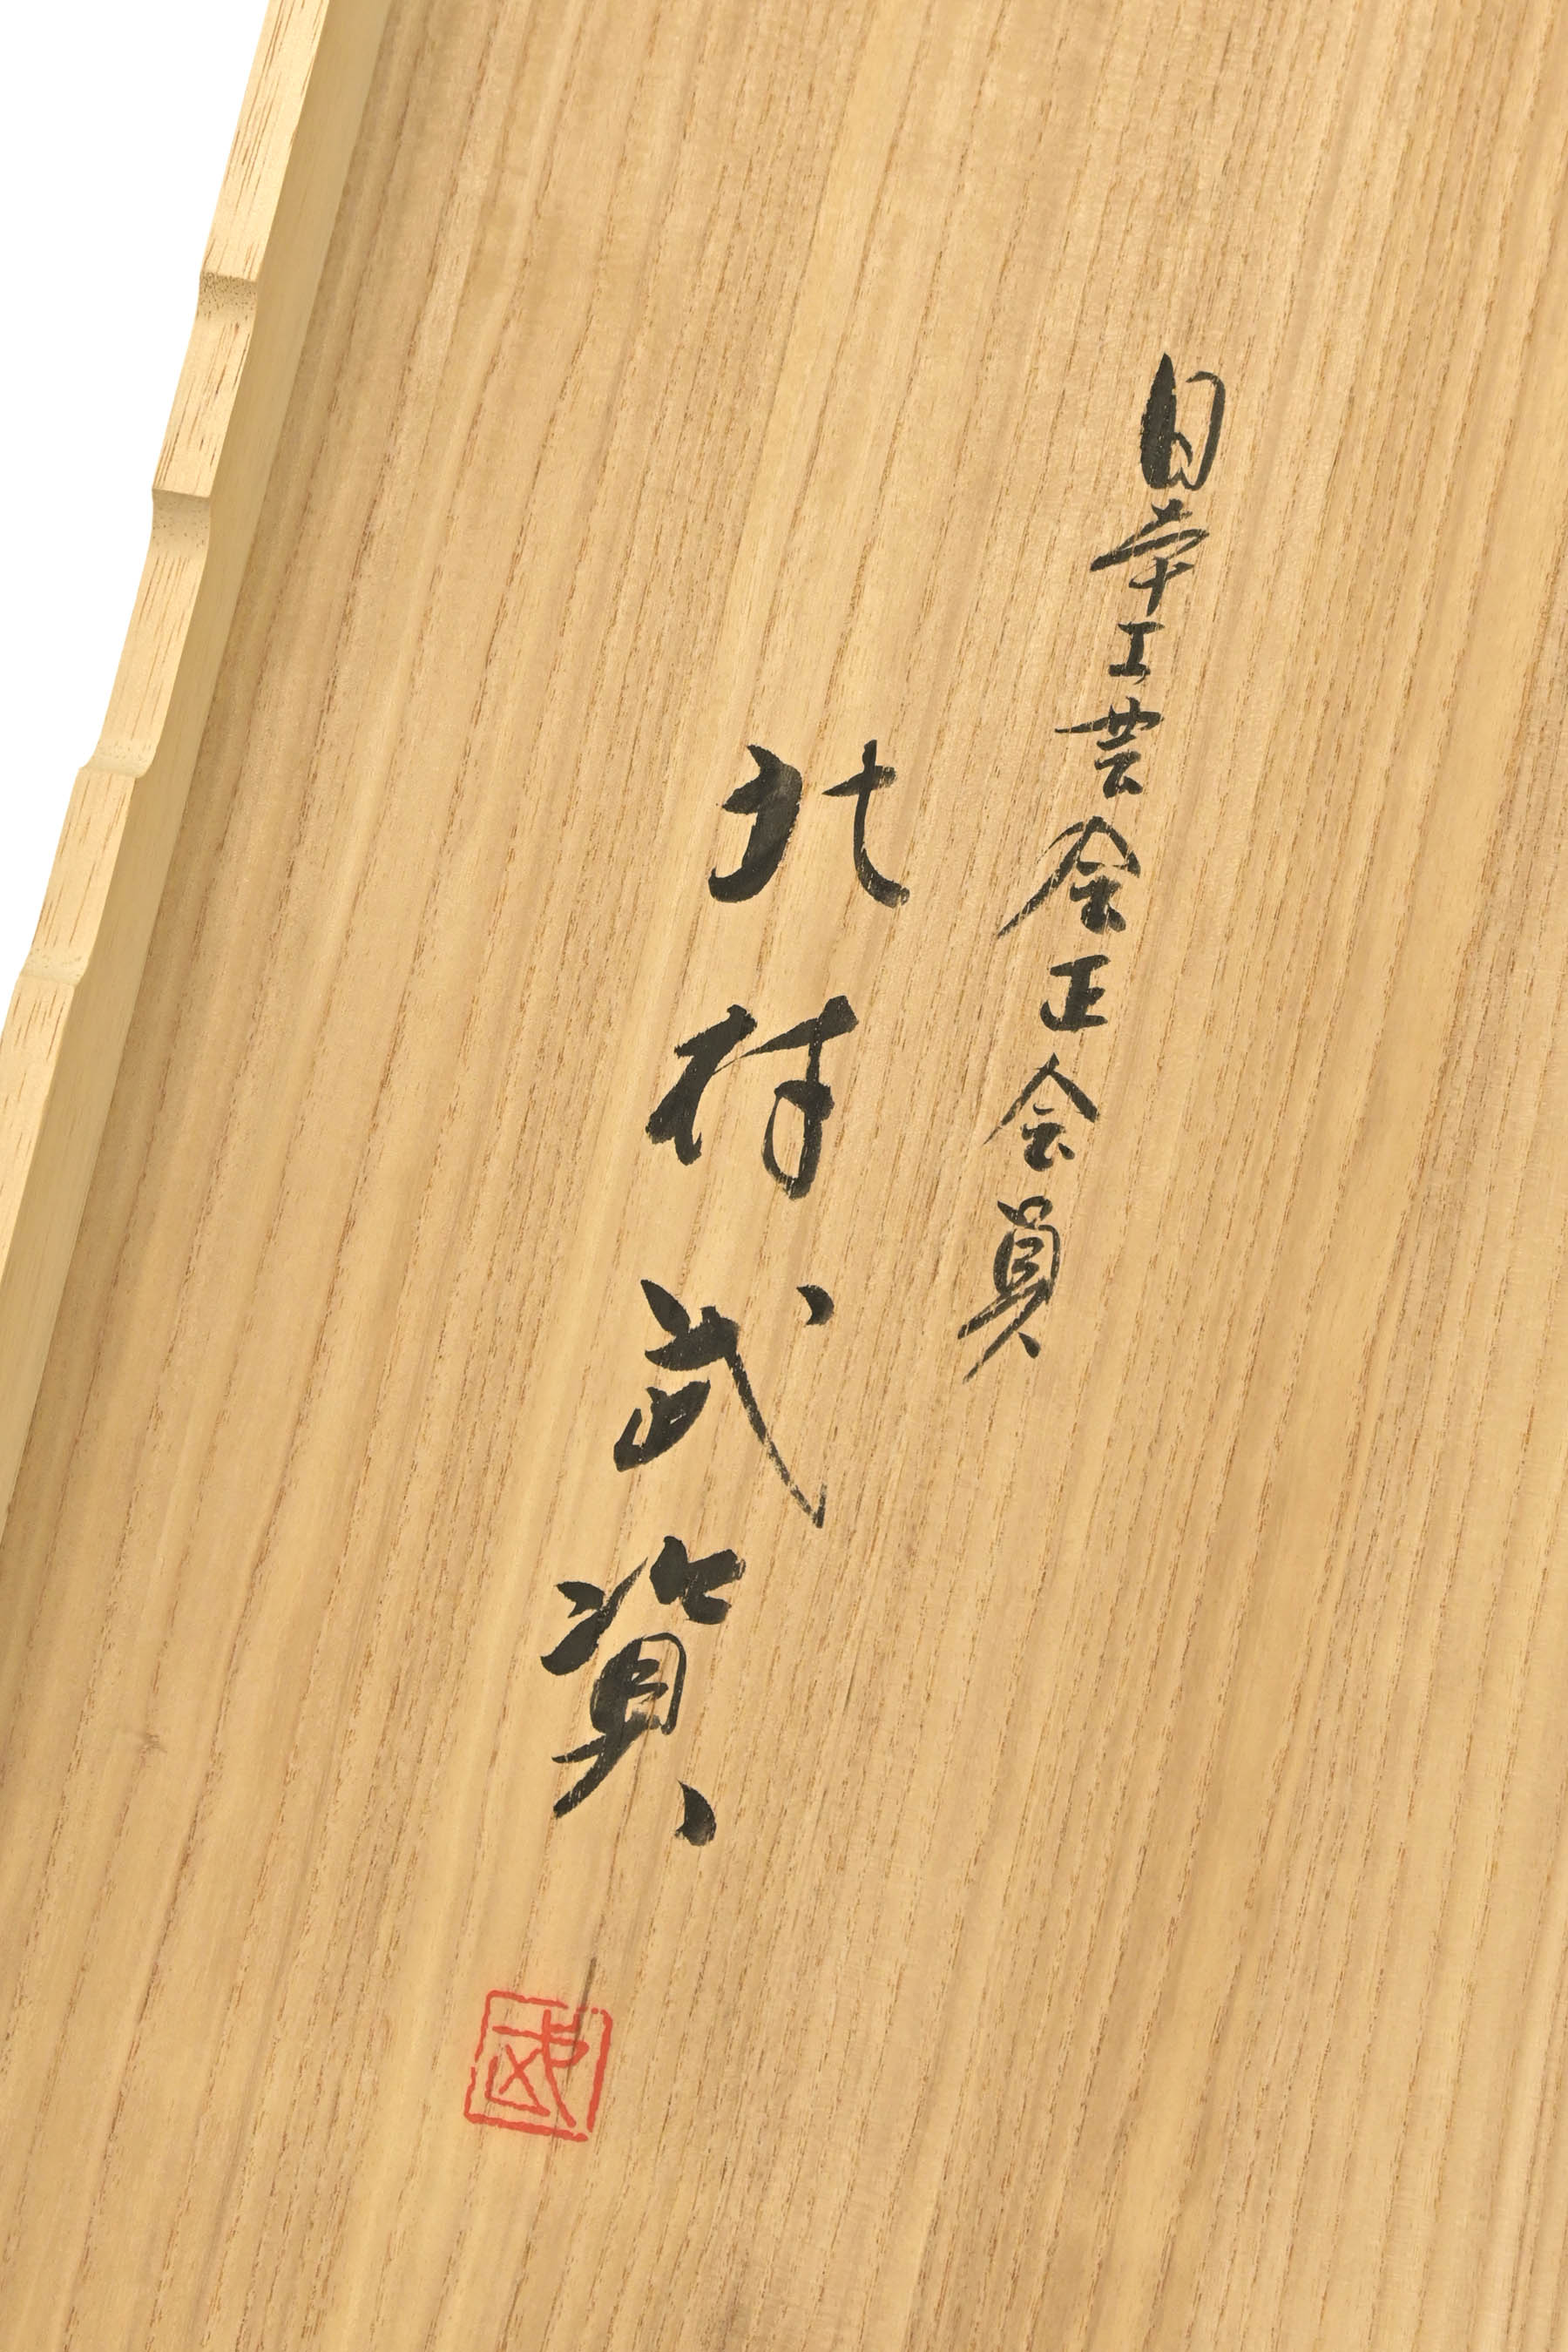 日本工芸会正会員
北村武資
武